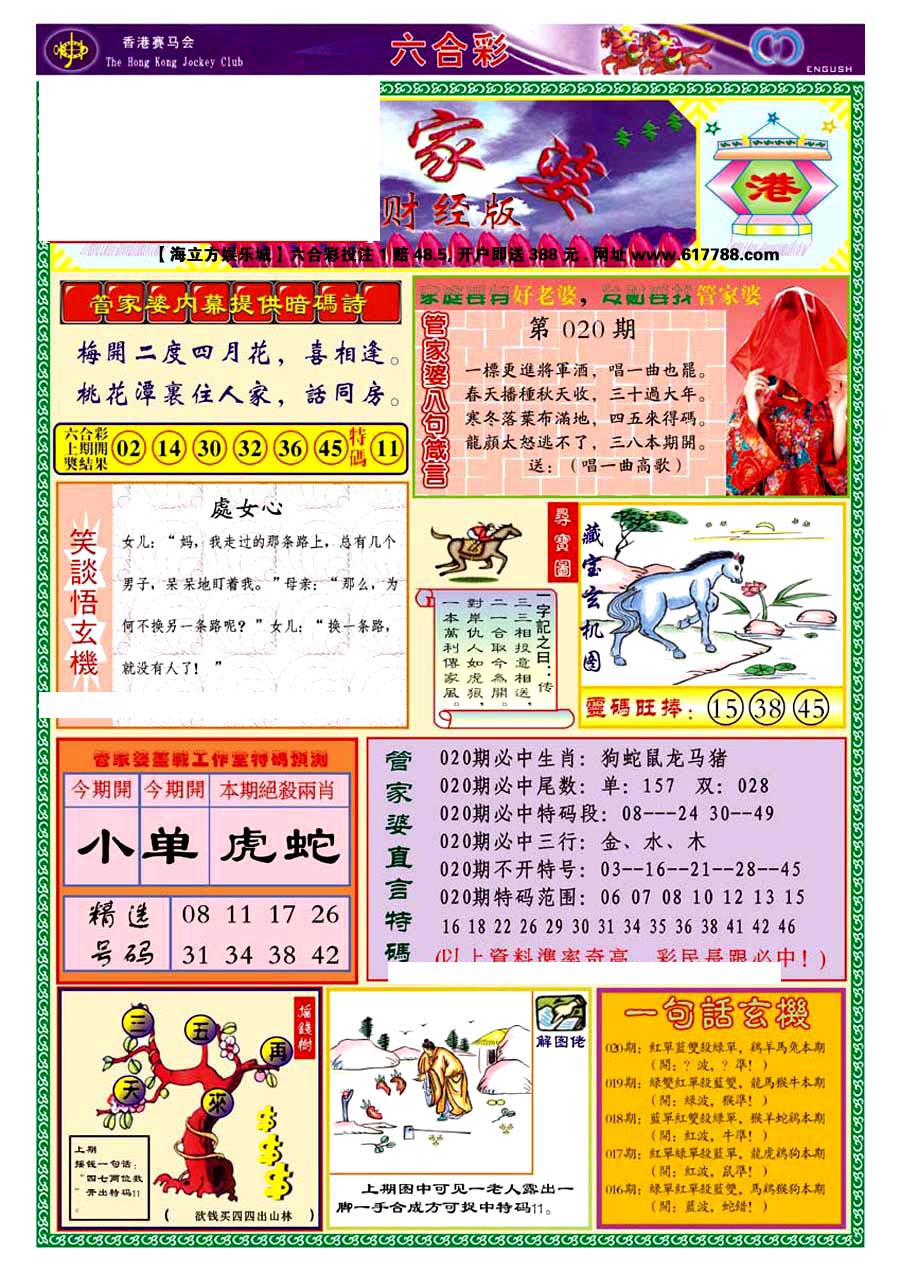 香港赛马会
The Hong Kong Jockey Club
六合彩
ENGUSH
家婆
财经版
港
【海立方娱乐城】六合彩投注 1 赔 48.5. 开户即送 388 元 . 网址 www.617788.com
管家婆内幕提供暗碼詩
梅開二度四月花，喜相逢。
桃花潭裏住人家，話同房。
六合彩
上期開
獎結果
02 14 30 32 36 45 特碼 11
好老婆，
管家婆
管家婆八句箴言
第 020 期
一標更進將軍酒，唱一曲也罷。
春天播種秋天收，三十過大年。
寒冬落葉布滿地，四五來得碼。
龍顔太怒逃不了，三八本期開。
送：（唱一曲高歌）
笑談悟玄機
處女心
女儿：“妈，我走过的那条路上，总有几个
男子，呆呆地盯着我。”母亲：“那么，为
何不换另一条路呢？”女儿：“换一条路，
就没有人了！”
尋寶圖
一字記之曰：传
三三相投意相送，
二一合取今為開。
對岸仇人如虎狼，
一本萬利傳家風。
藏宝玄机图
靈碼旺捧：15 38 45
管家婆
工作室特码預測
今期開 今期開 本期絕殺兩肖
小 单 虎蛇
精选
号码
08 11 17 26
31 34 38 42
管家婆直言特碼
020期必中生肖：狗蛇鼠龙马猪
020期必中尾数：单：157 双：028
020期必中特码段：08---24 30--49
020期必中三行：金、水、木
020期不开特号：03--16--21--28--45
020期特码范围：06 07 08 10 12 13 15
16 18 22 26 29 30 31 34 35 36 38 41 42 46
(以上資料準率奇高，彩民長跟必中！)
摇錢樹
三 五 再 天 來
上期
摇钱一句话：
“四七两位数
”开出特码11
。
( 欲钱买四四出山林 )
解图佬
上期图中可见一老人露出一
脚一手合成方可捉中特码11。
一句話玄機
020期：紅單藍雙殺綠單，鷄羊馬兔本期
（開：？波，？準！）
019期：綠雙紅單殺藍雙，龍馬猴牛本期
（開：綠波，猴準！）
018期：藍單紅雙殺綠單，猴羊蛇鷄本期
（開：紅波，牛準！）
017期：紅單綠單殺藍單，龍虎鷄狗本期
（開：紅波，鼠準！）
016期：綠單紅單殺藍雙，馬鷄猴狗本期
（開：藍波，蛇錯！）